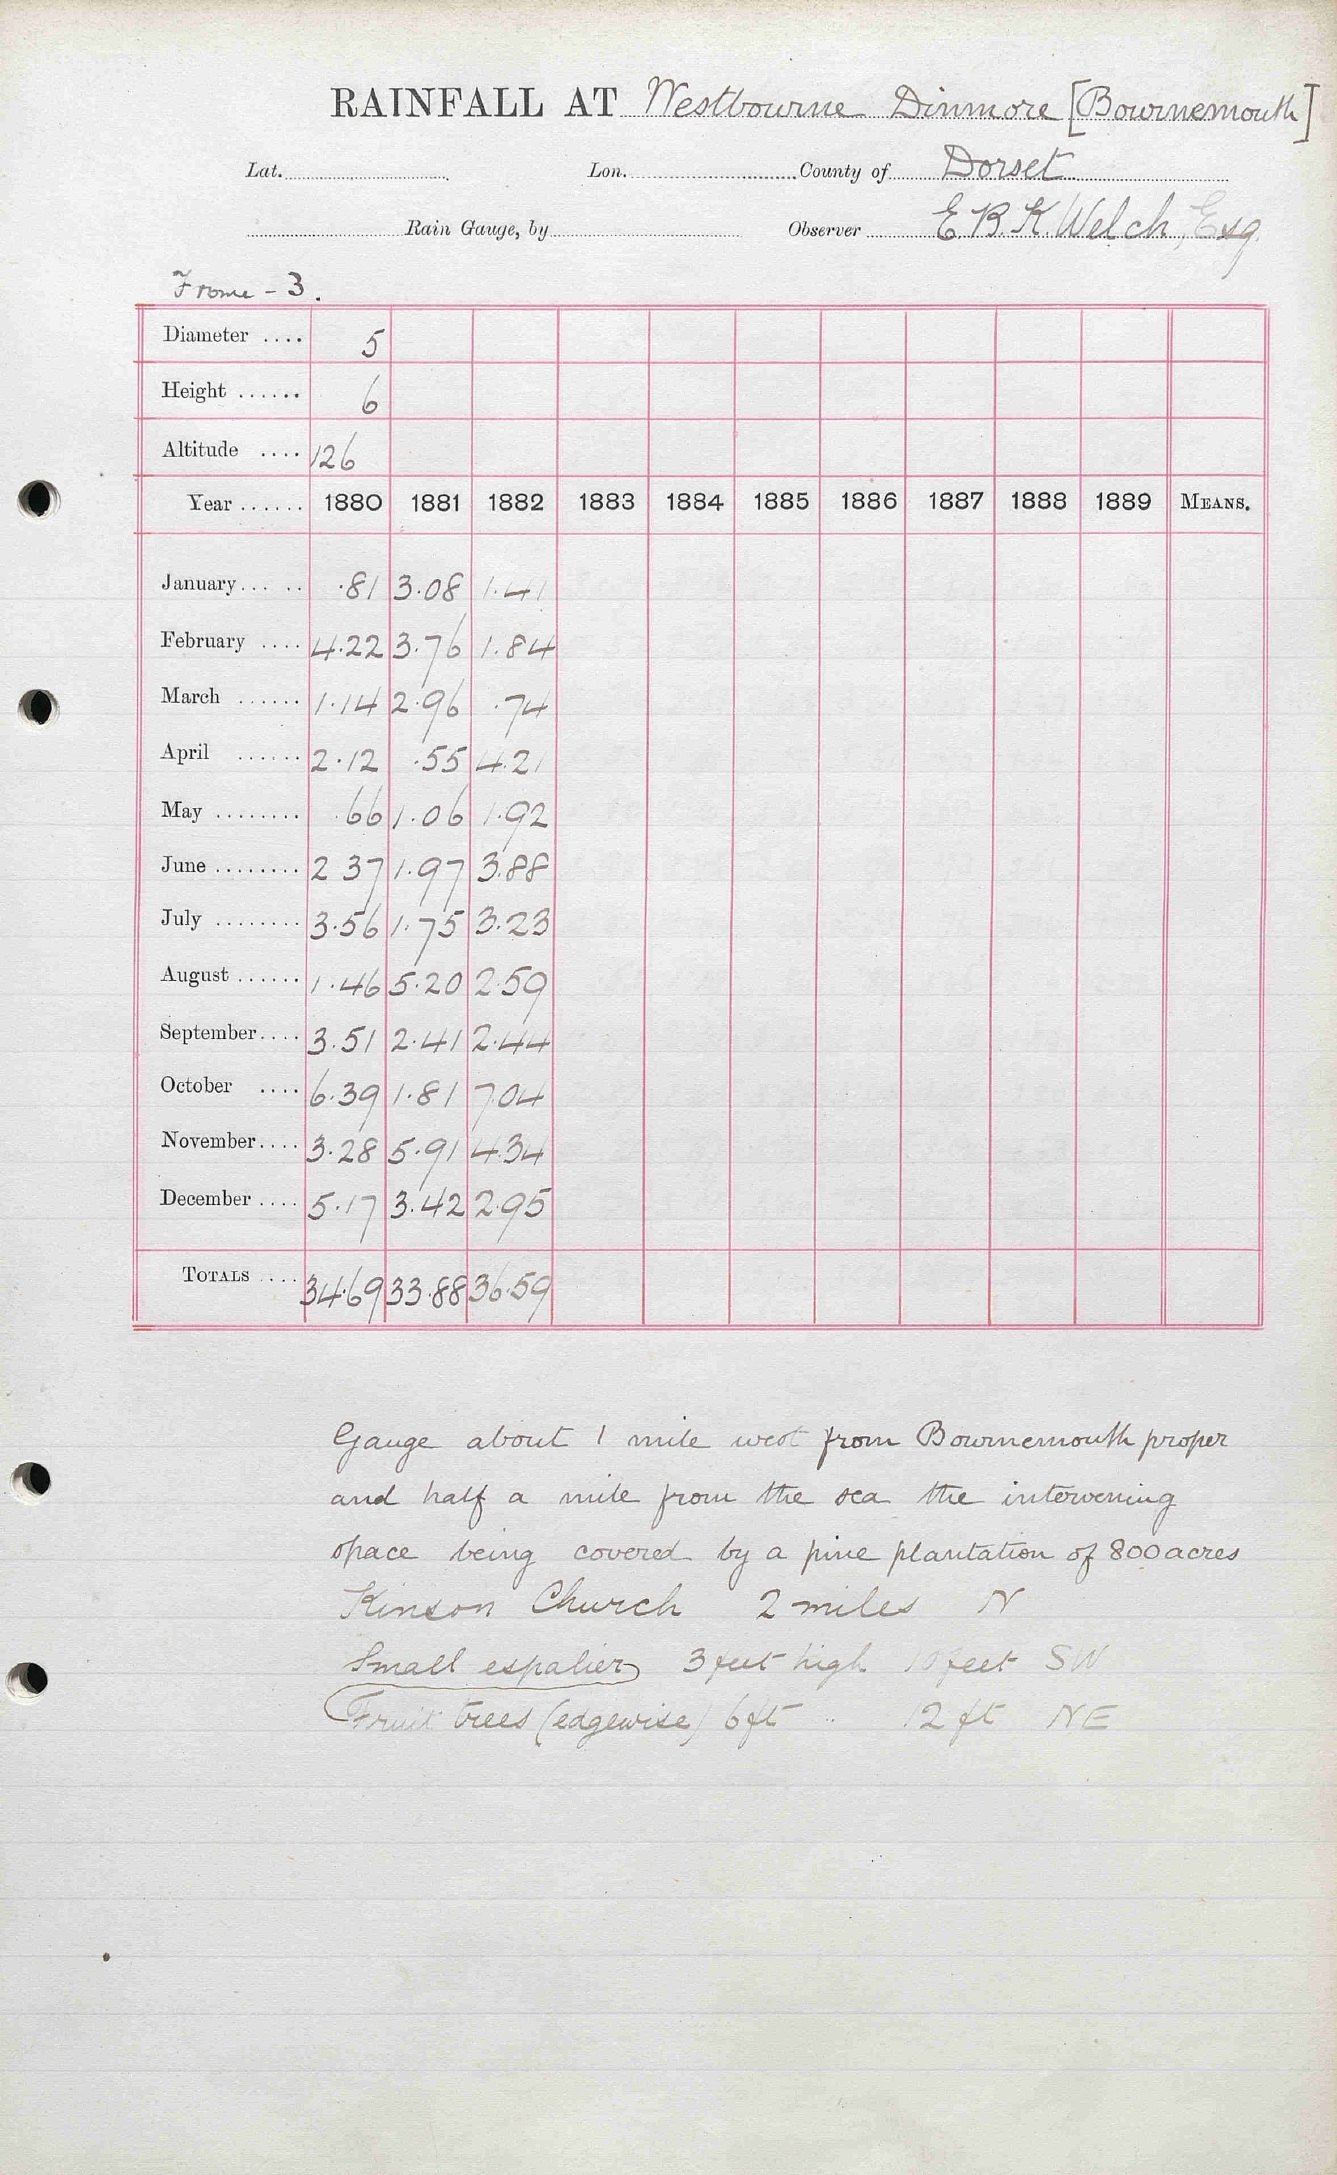 RAINFALL AT Westbourne Dinmore [Bournemouth]
Lat. Lon. County of Dorset
Rain Gauge, by Observer E. B. K. Welch, Esq.
Frome - 3.
Diameter .... 5
Height ...... 6
Altitude .... 126
Year ...... 1880 1881 1882 1883 1884 1885 1886 1887 1888 1889 MEANS.
January ... .. .81 3.08 1.41
February .... 4.22 3.76 1.84
March ...... 1.14 2.96 .74
April ...... 2.12 .55 4.21
May ........ .66 1.06 1.92
June ........ 2 37 1.97 3.88
July ........ 3.56 1.75 3.23
August ...... 1.46 5.20 2.59
September .... 3.51 2.41 2.44
October .... 6.39 1.81 7.04
November .... 3.28 5.91 4.34
December .... 5.17 3.42 2.95
TOTALS .... 34.69 33.88 36.59
Gauge about 1 mile west from Bournemouth proper
and half a mile from the sea the intervening
space being covered by a pine plantation of 800 acres
Kinson Church 2 miles N
Small espalier 3 feet high 10 feet SW
Fruit trees (edgewise) 6 ft .. 12 ft NE